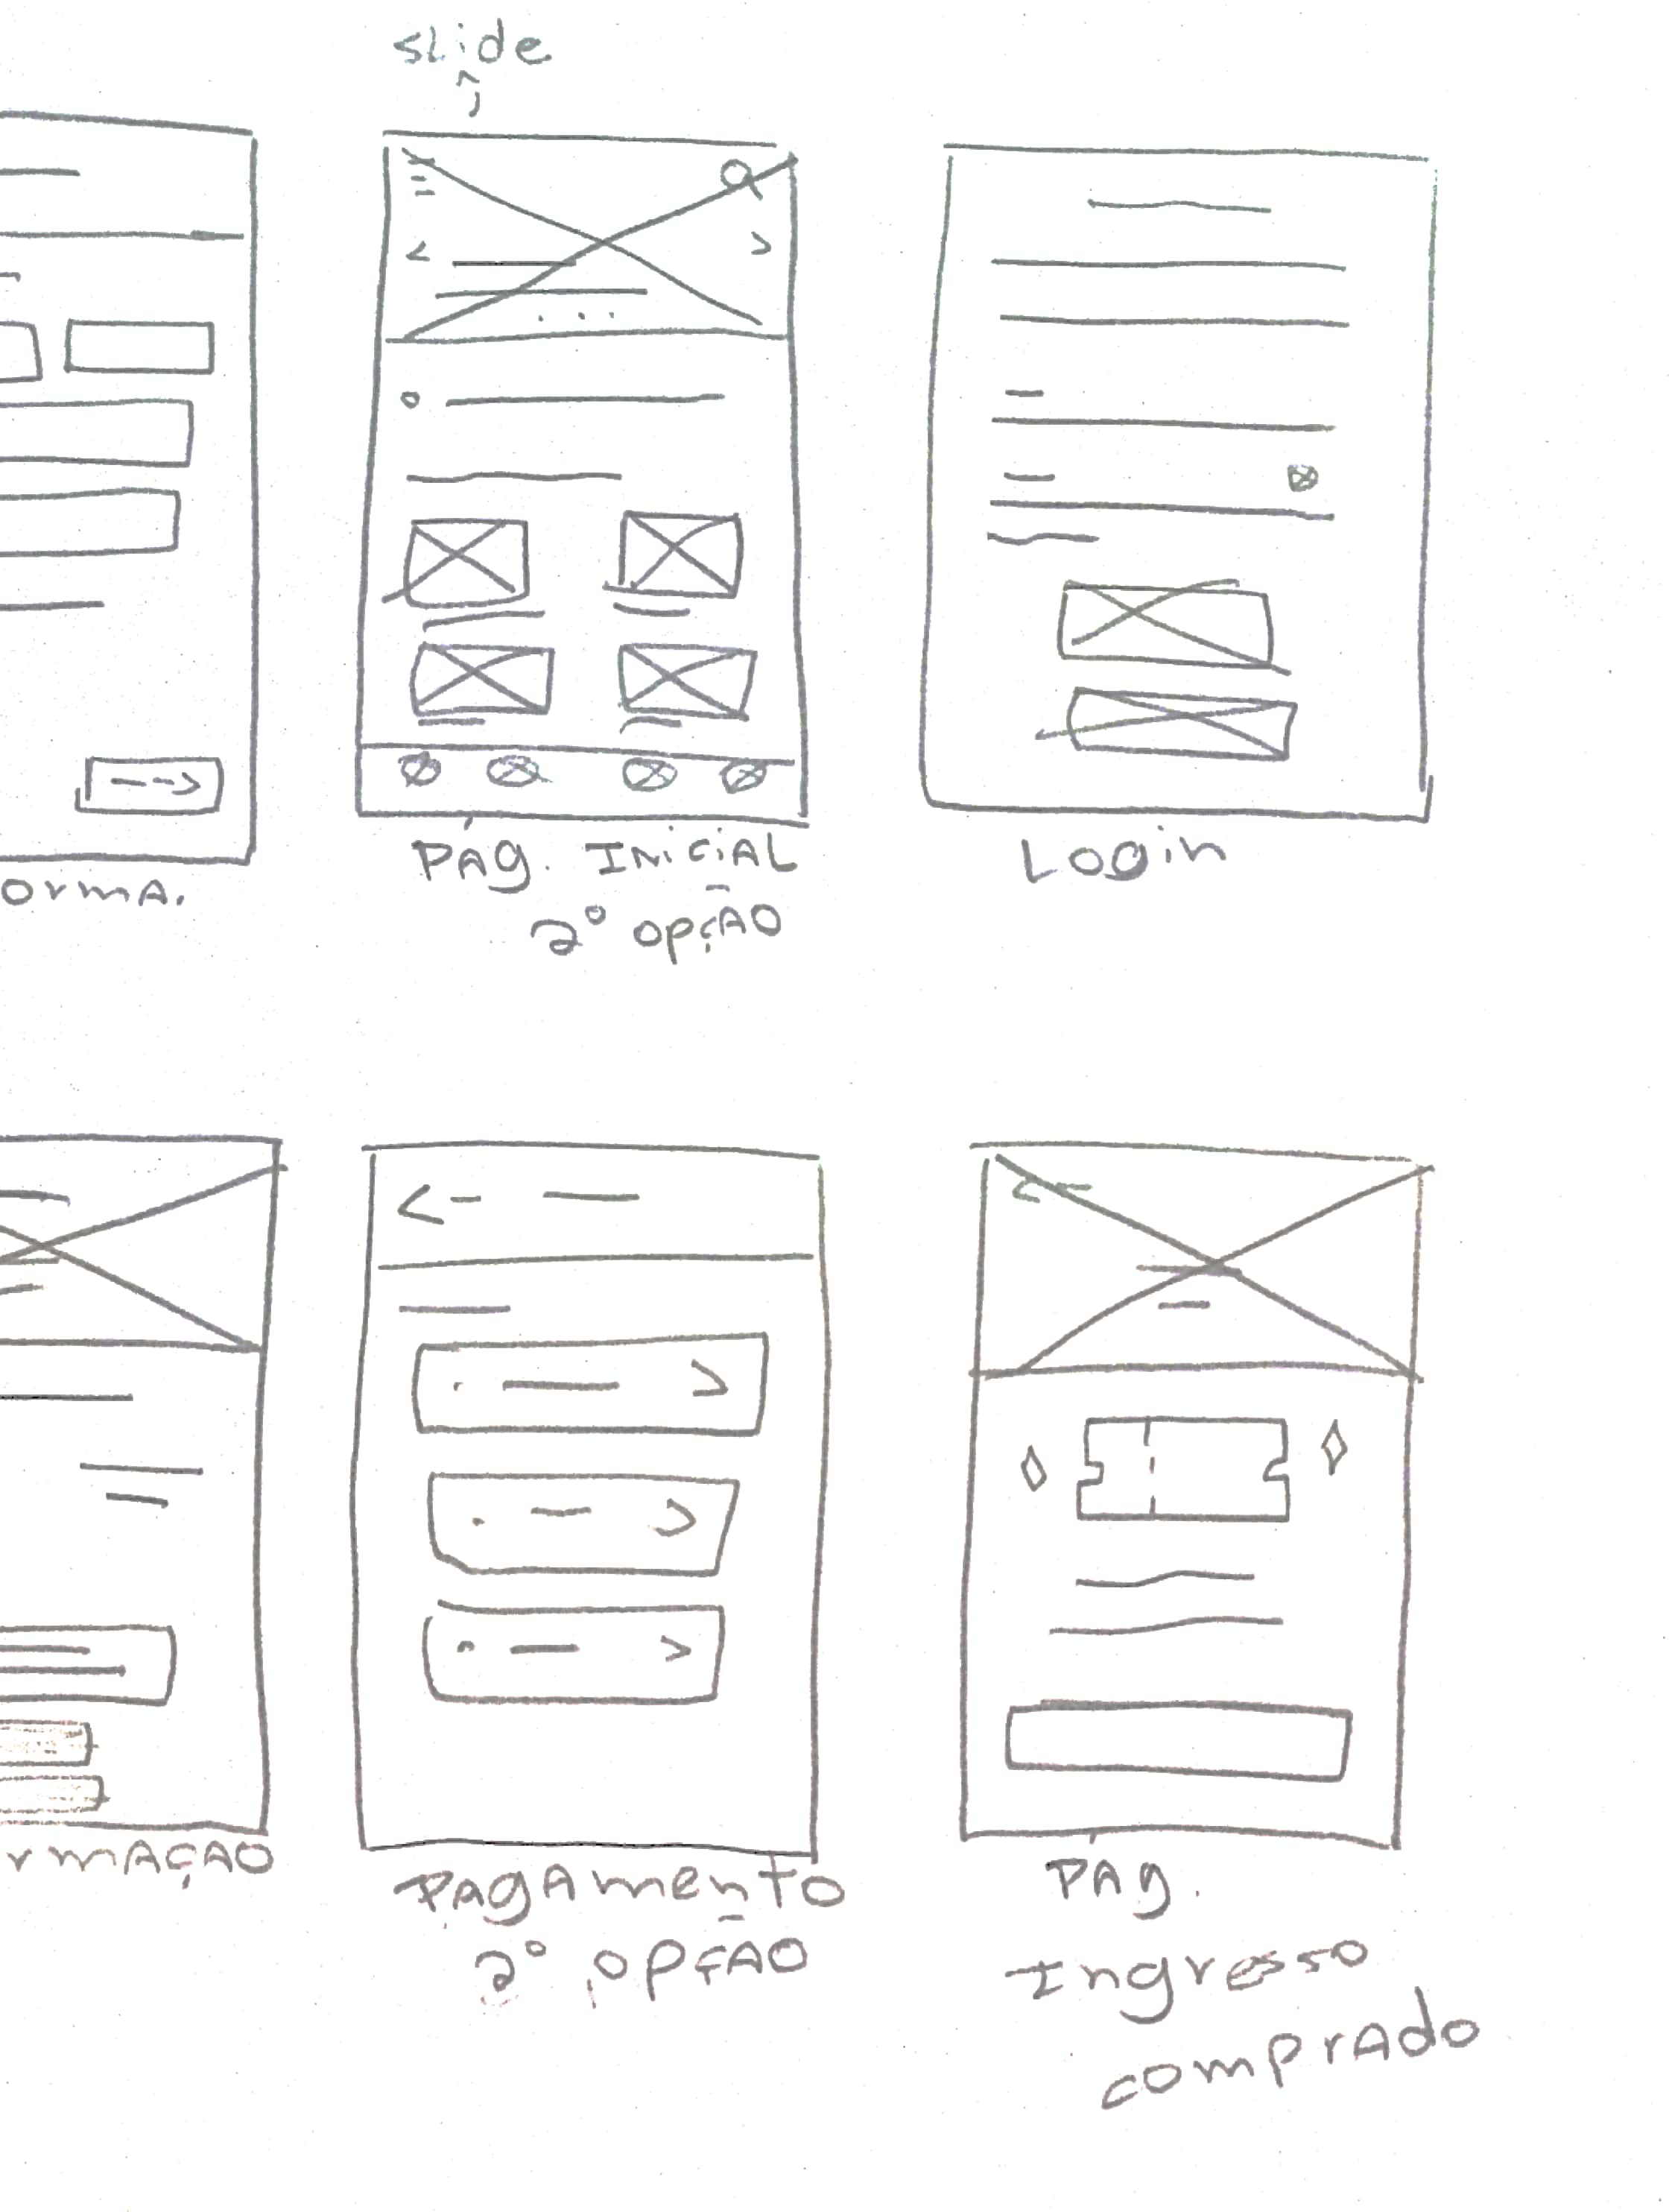 slide
orma.
Pág. Inicial
2º opção
Login
rmação
Pagamento
2º opção
Pág.
Ingresso
comprado